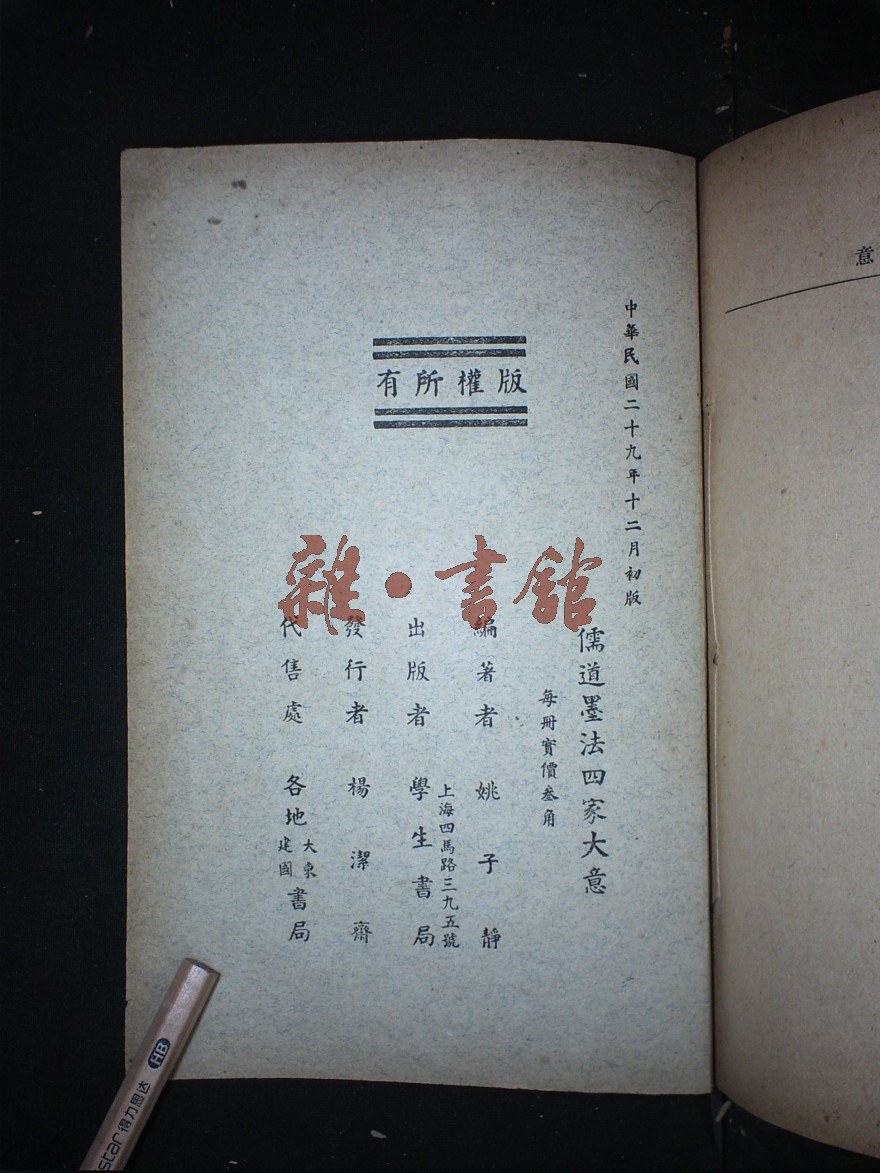 中華民國二十九年十二月初版
儒道墨法四家大意
每冊實價叁角
版權所有
編著者 姚子靜
出版者 學生書局
上海四馬路三九五號
發行者 楊潔齋
代售處 各地大東建國書局
雜·書館
意
star得力思达
HB